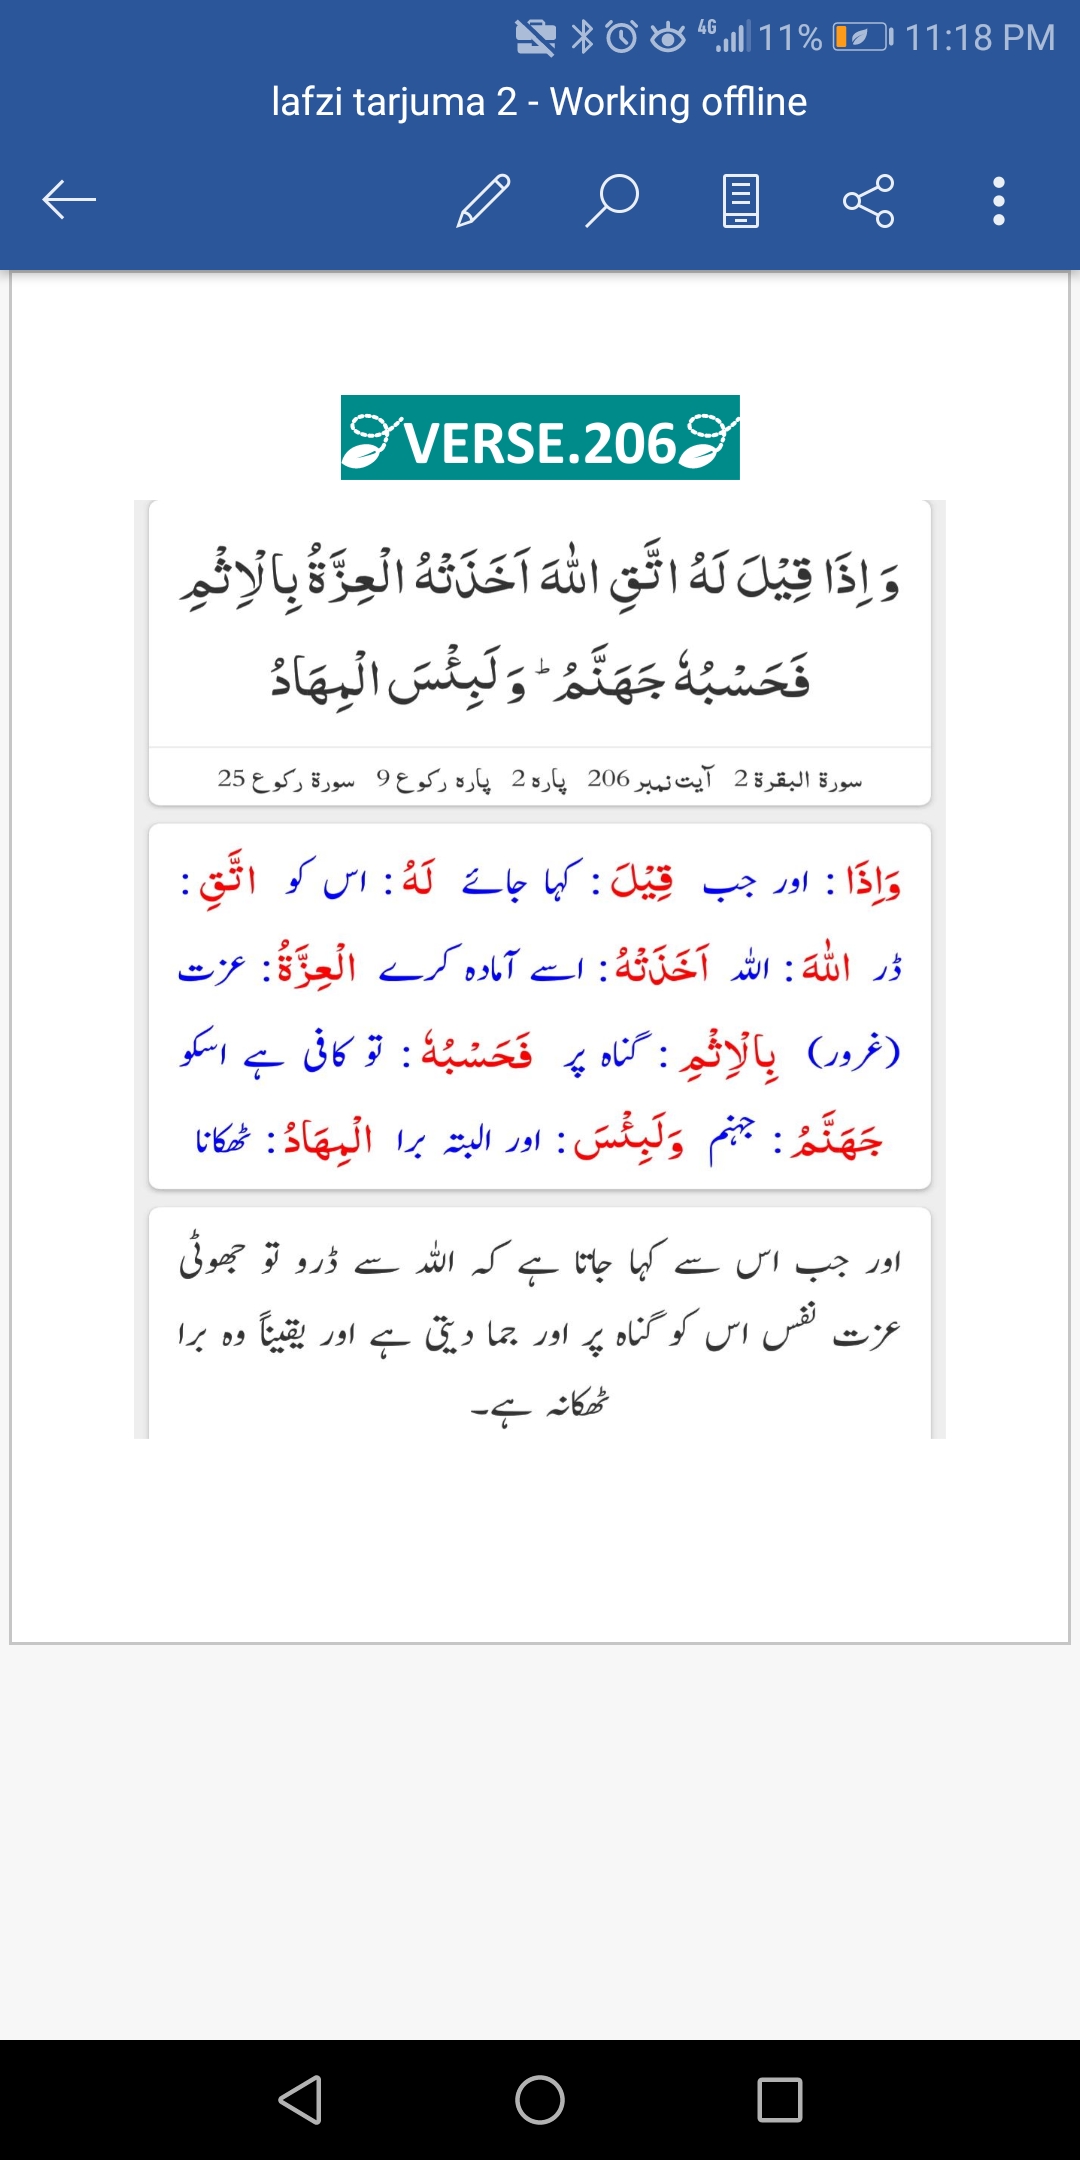 4G 11% 11:18 PM
lafzi tarjuma 2 - Working offline
VERSE.206
وَ اِذَا قِیْلَ لَهُ اتَّقِ اللّٰهَ اَخَذَتْهُ الْعِزَّةُ بِالْاِثْمِ
فَحَسْبُهٗ جَهَنَّمُ ؕ وَ لَبِئْسَ الْمِهَادُ
سورۃ البقرۃ 2 آیت نمبر 206 پارہ 2 پارہ رکوع 9 سورۃ رکوع 25
وَاِذَا : اور جب قِيْلَ : کہا جائے لَهُ : اس کو اتَّقِ :
ڈر اللّٰهَ : اللہ اَخَذَتْهُ : اسے آمادہ کرے الْعِزَّةُ : عزت
(غرور) بِالْاِثْمِ : گناہ پر فَحَسْبُهٗ : تو کافی ہے اسکو
جَهَنَّمُ : جہنم وَلَبِئْسَ : اور البتہ برا الْمِهَادُ : ٹھکانا
اور جب اس سے کہا جاتا ہے کہ اللہ سے ڈرو تو جھوٹی
عزت نفس اس کو گناہ پر اور جما دیتی ہے اور یقیناً وہ برا
ٹھکانہ ہے۔